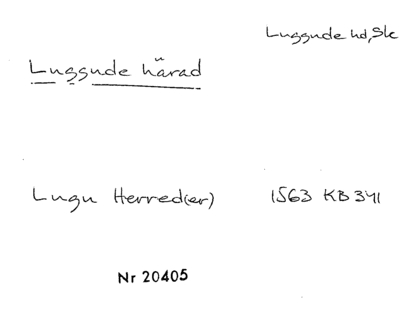 Luggude hd, Sk
Luggude härad
Lugu Herred(er) 1563 KB 341
Nr 20405